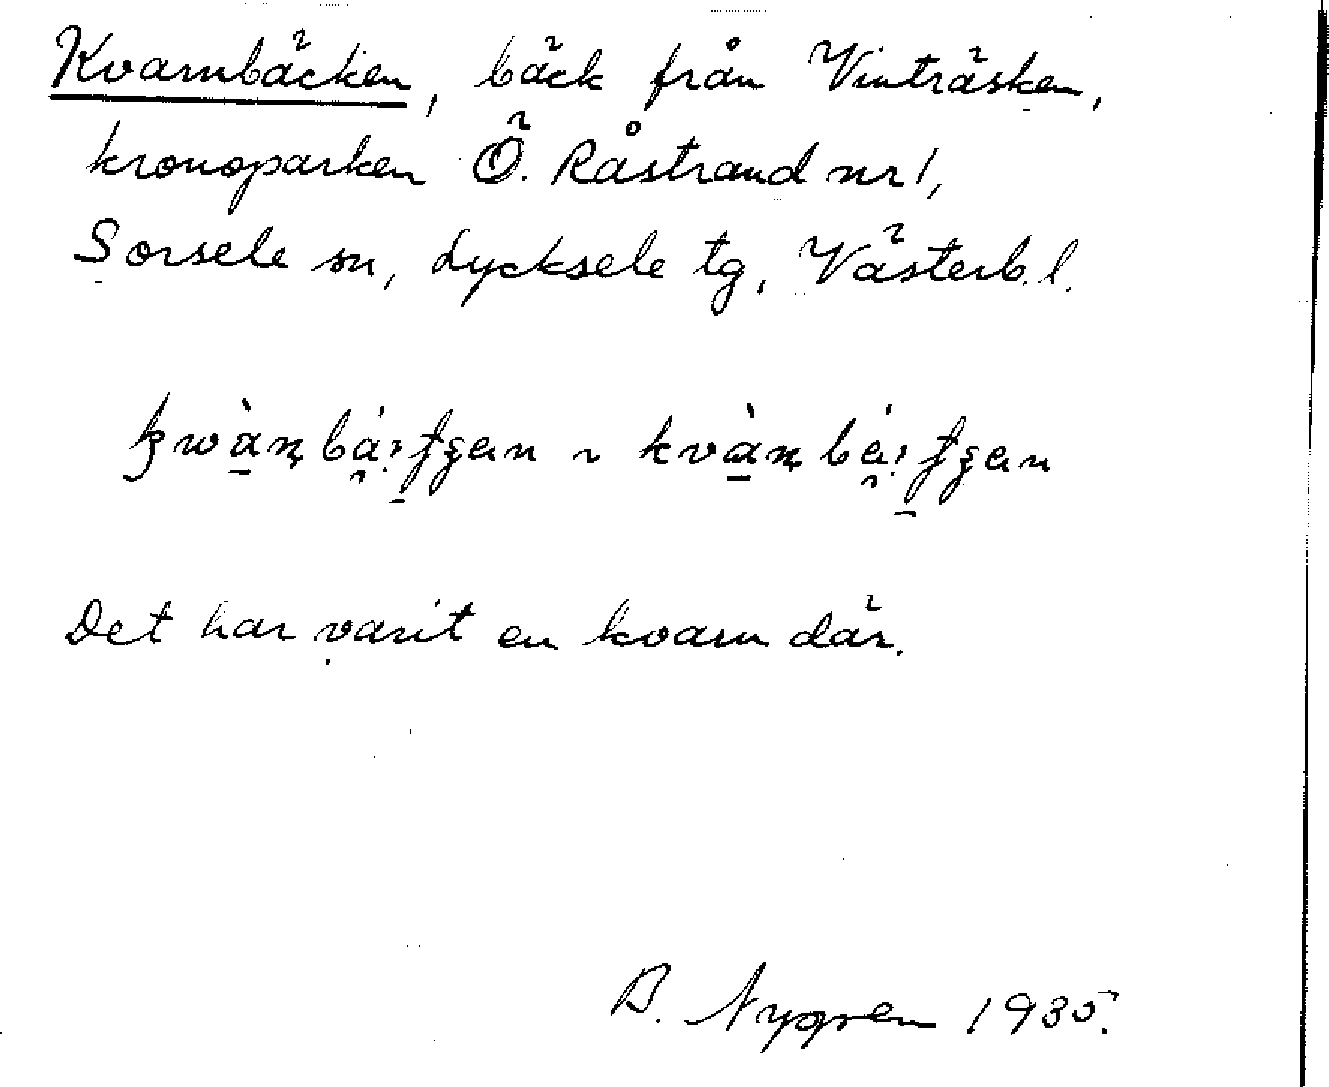 Kvarnbäcken, bäck från Vinträsken,
kronoparken Ö. Råstrand nr 1,
Sorsele sn, Lycksele tg, Västerb. l.
Det har varit en kvarn där.
B. Nygren 1935.